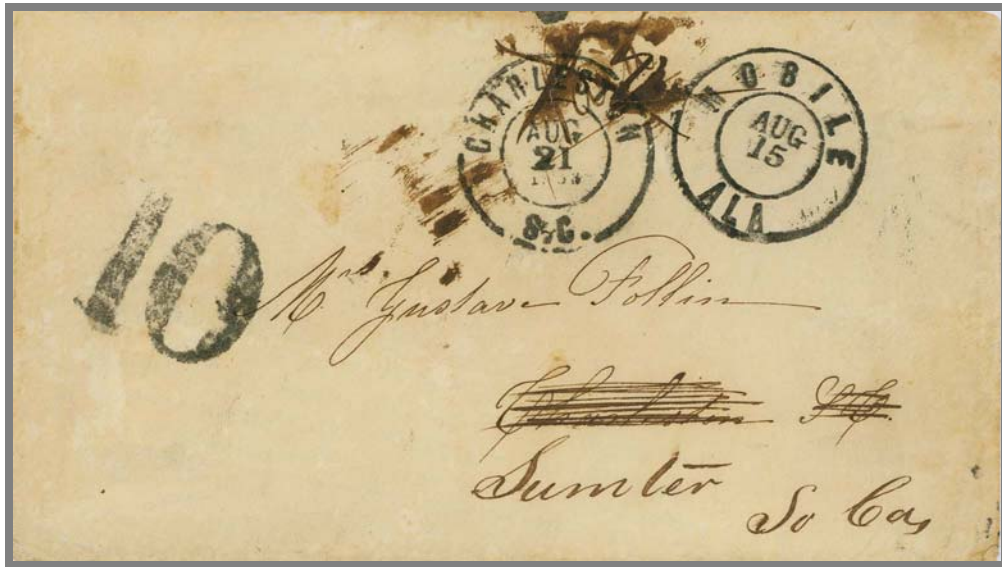 CHARLESTON
AUG
21
S.C.
MOBILE
AUG
15
ALA
10
Mrs. Gustave Follin
Charleston SC.
Sumter
So Ca